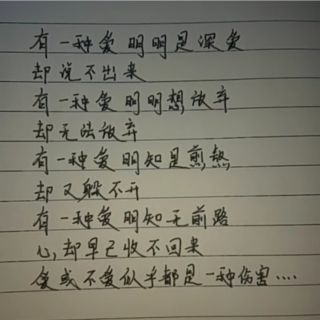 有一种爱明明是深爱
却说不出来
有一种爱明明想放弃
却无法放弃
有一种爱明知是煎熬
却又躲不开
有一种爱明知无前路
心,却早已收不回来
爱或不爱似乎都是一种伤害....